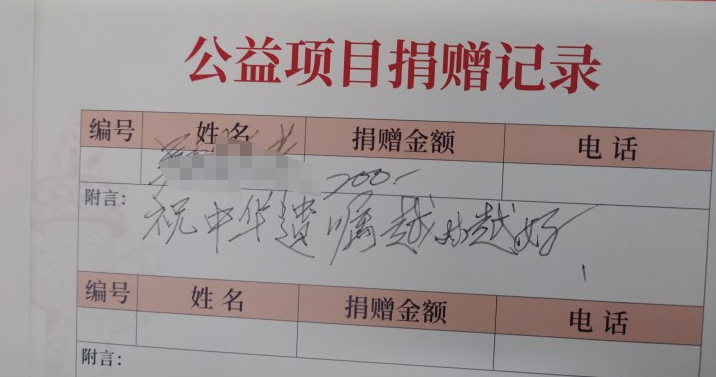 公益项目捐赠记录
编号 姓名 捐赠金额 电话
200.-
附言：
祝中华遗嘱越办越好
编号 姓名 捐赠金额 电话
附言：